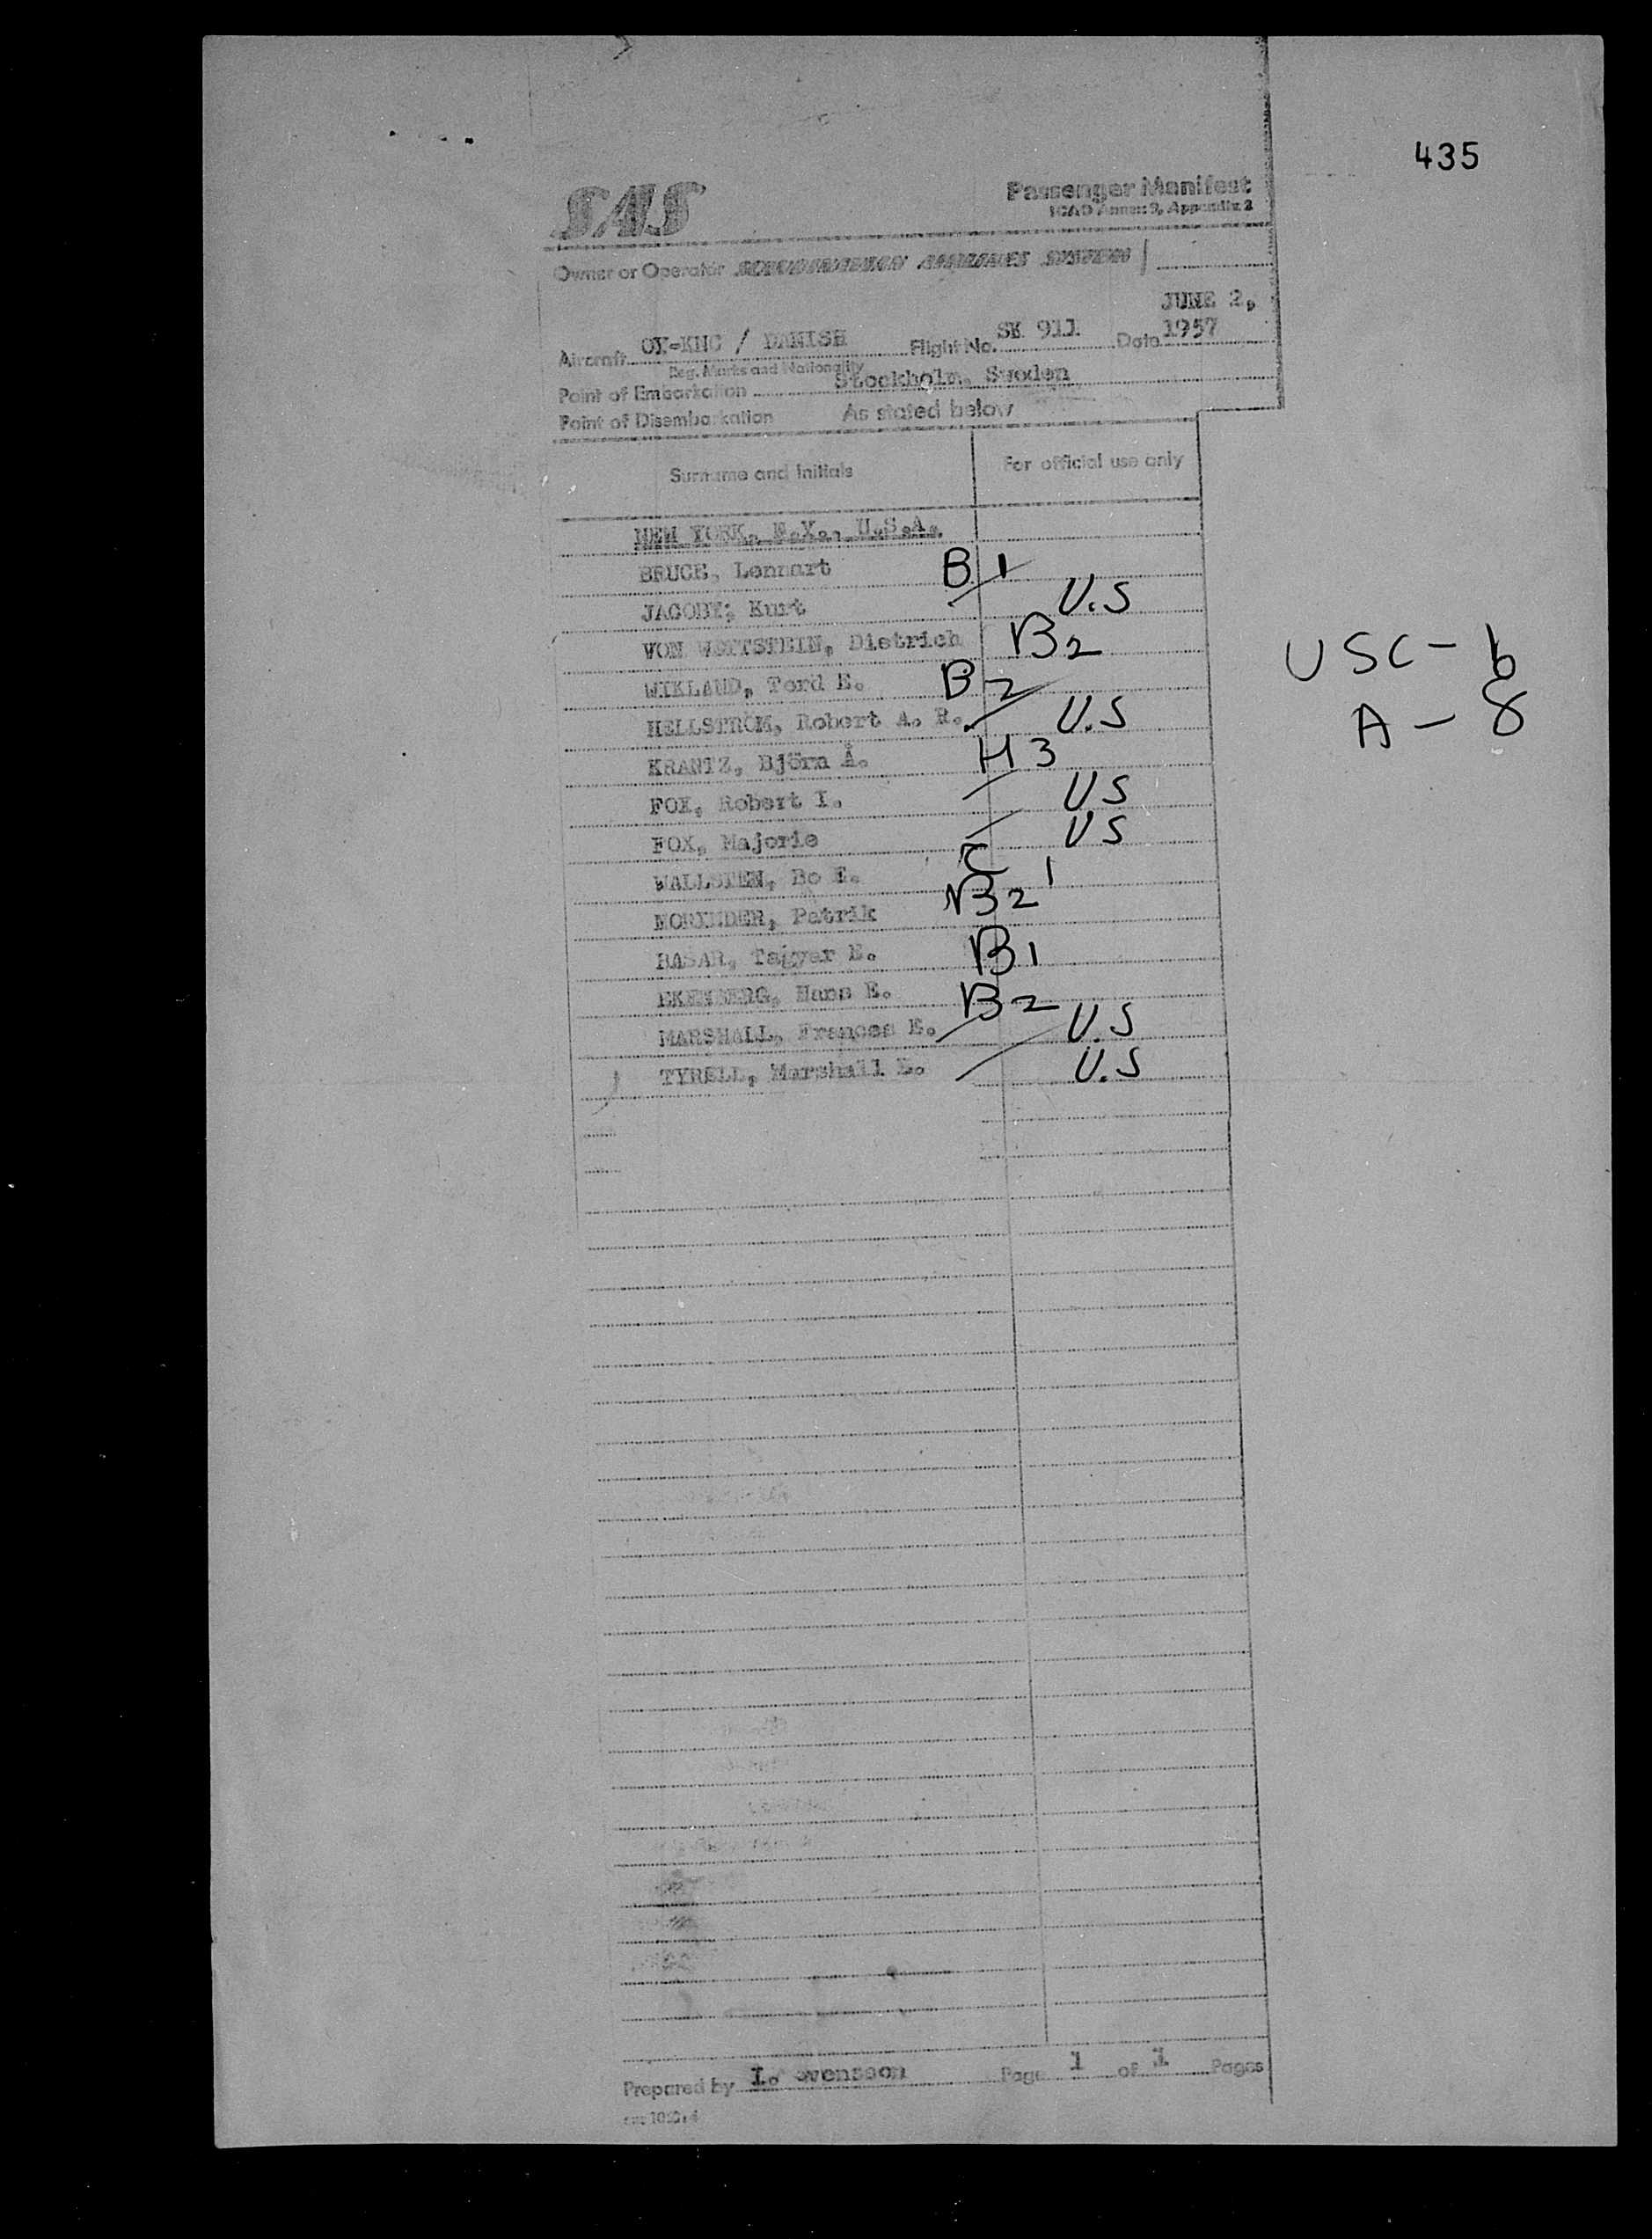 435
SAS
Passenger Manifest
ICAO Annex 9, Appendix 2
Owner or Operator SCANDINAVIAN AIRLINES SYSTEM
JUNE 2,
Aircraft OY-KNC / DANISH Flight No. SK 911 Date 1957
Reg. Marks and Nationality
Point of Embarkation Stockholm, Sweden
Point of Disembarkation As stated below
Surname and Initials For official use only
NEW YORK, N.Y., U.S.A.
BRUCE, Lennart B 1
JACOBY, Kurt U.S
VON WETTSTEIN, Dietrich B2
USC - 6
WIKLAND, Tord E. B 2
HELLSTRÖM, Robert A. R. U.S
A - 8
KRANTZ, Björn Å. H 3
FOX, Robert I. U S
FOX, Majorie U S
WALLSTEN, Bo
Patrik B2
BASAR, E. B1
EKENBERG, Hans E. B2
MARSHALL, Frances E. U.S
TYRELL, Marshall E. U.S
Prepared by I. Svensson Page 1 of 1 Pages